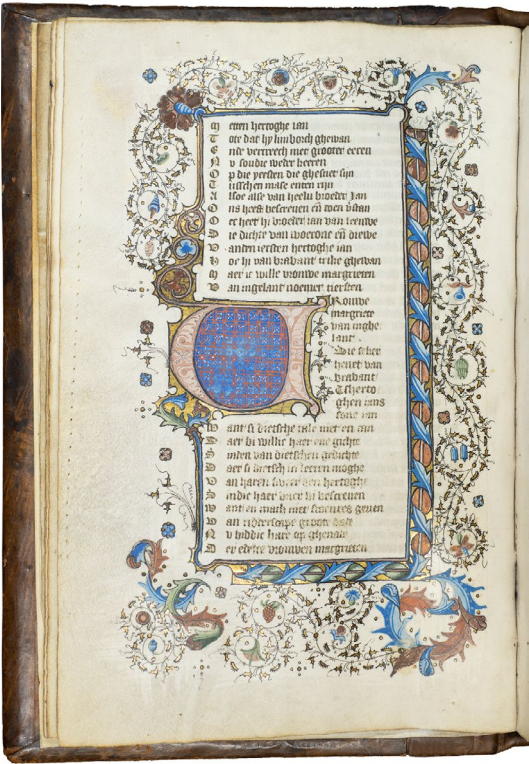 M etten hertoghe ian
T ote dat hy limborch ghewan
E nde verttrech met grooter eeren
N v soudic weder keeren
O p die yeesten die ghesciet sijn
T usschen mase enten rijn
A lsoe alse van heelu broeder Jan
O ns heeft bescreven en̄ toen
O ec heet hi broeder ian van leeuwe
D ie dichte van woerone en̄ diewe
V anden iersten hertoghe ian
H oe hi van brabant tlijc ghewan
M aer ic wille vrouwe margrieten
V an ingelant noemen tiersten
Vrouwe
margriete
van inghe
lant
Die seker
heuet van
brabant
Tsherto
ghen ians
sone ian
W ant si dietsche tale niet en can
D aer bi willic haer ene gichte
S inden van dietschen gedichte
D aer si dietsch in leeren moghe
V an haren sweer den hertoghe
S indic haer daer in bescreven
W ant en mach niet scoenres geven
V an ridderscape groote dade
N v biddic hare op ghenade
D er edelre vrouwen margrieten